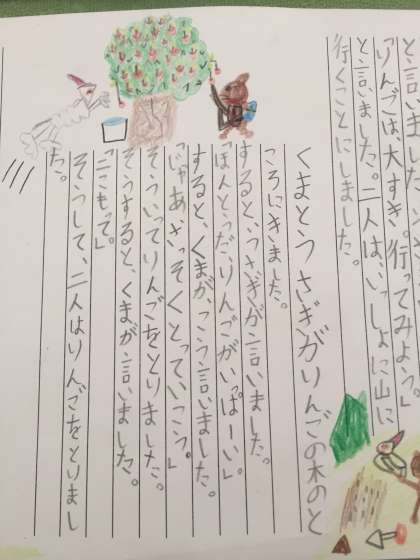 と言いました。
「りんごは、大すき。行ってみよう。」
と言いました。二人は、いっしょに山に
行くことにしました。
くまとうさぎがりんごの木のと
ころにきました。
すると、うさぎが言いました。
「ほんとうだ、りんごがいっぱーい。」
すると、くまが、こう言いました。
「じゃあ、さっそくとっていこう。」
そういってりんごをとりました。
そうすると、くまが言いました。
「ここもって。」
そうして、二人はりんごをとりまし
た。